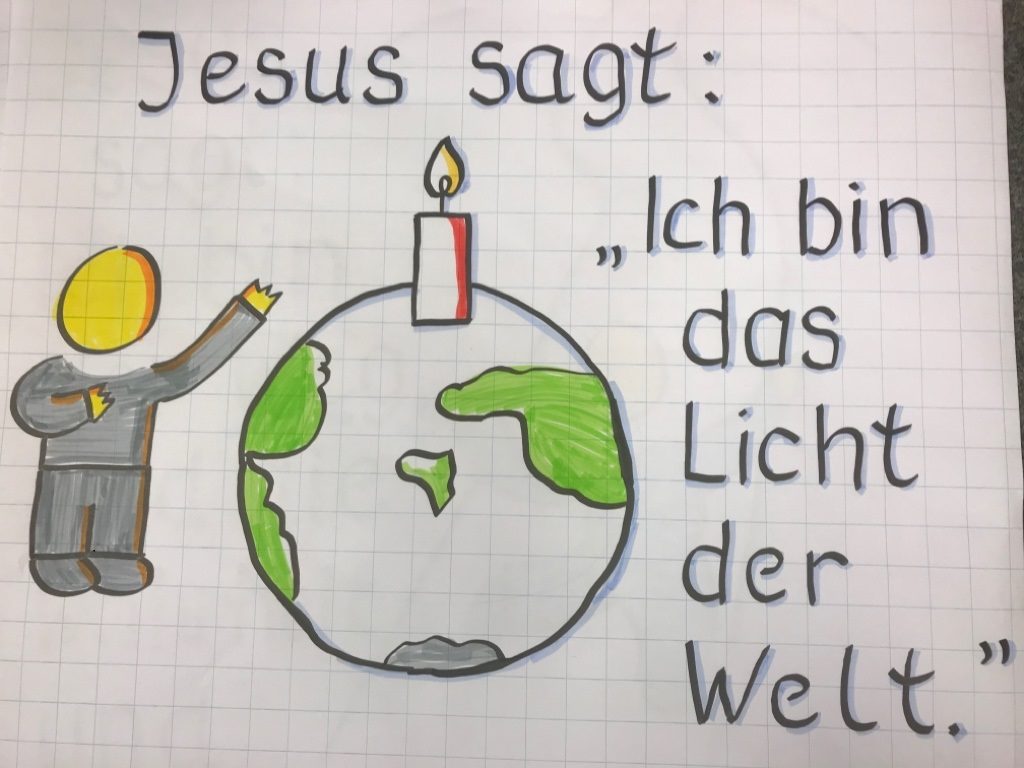 Jesus sagt:
„Ich bin
das
Licht
der
Welt.”